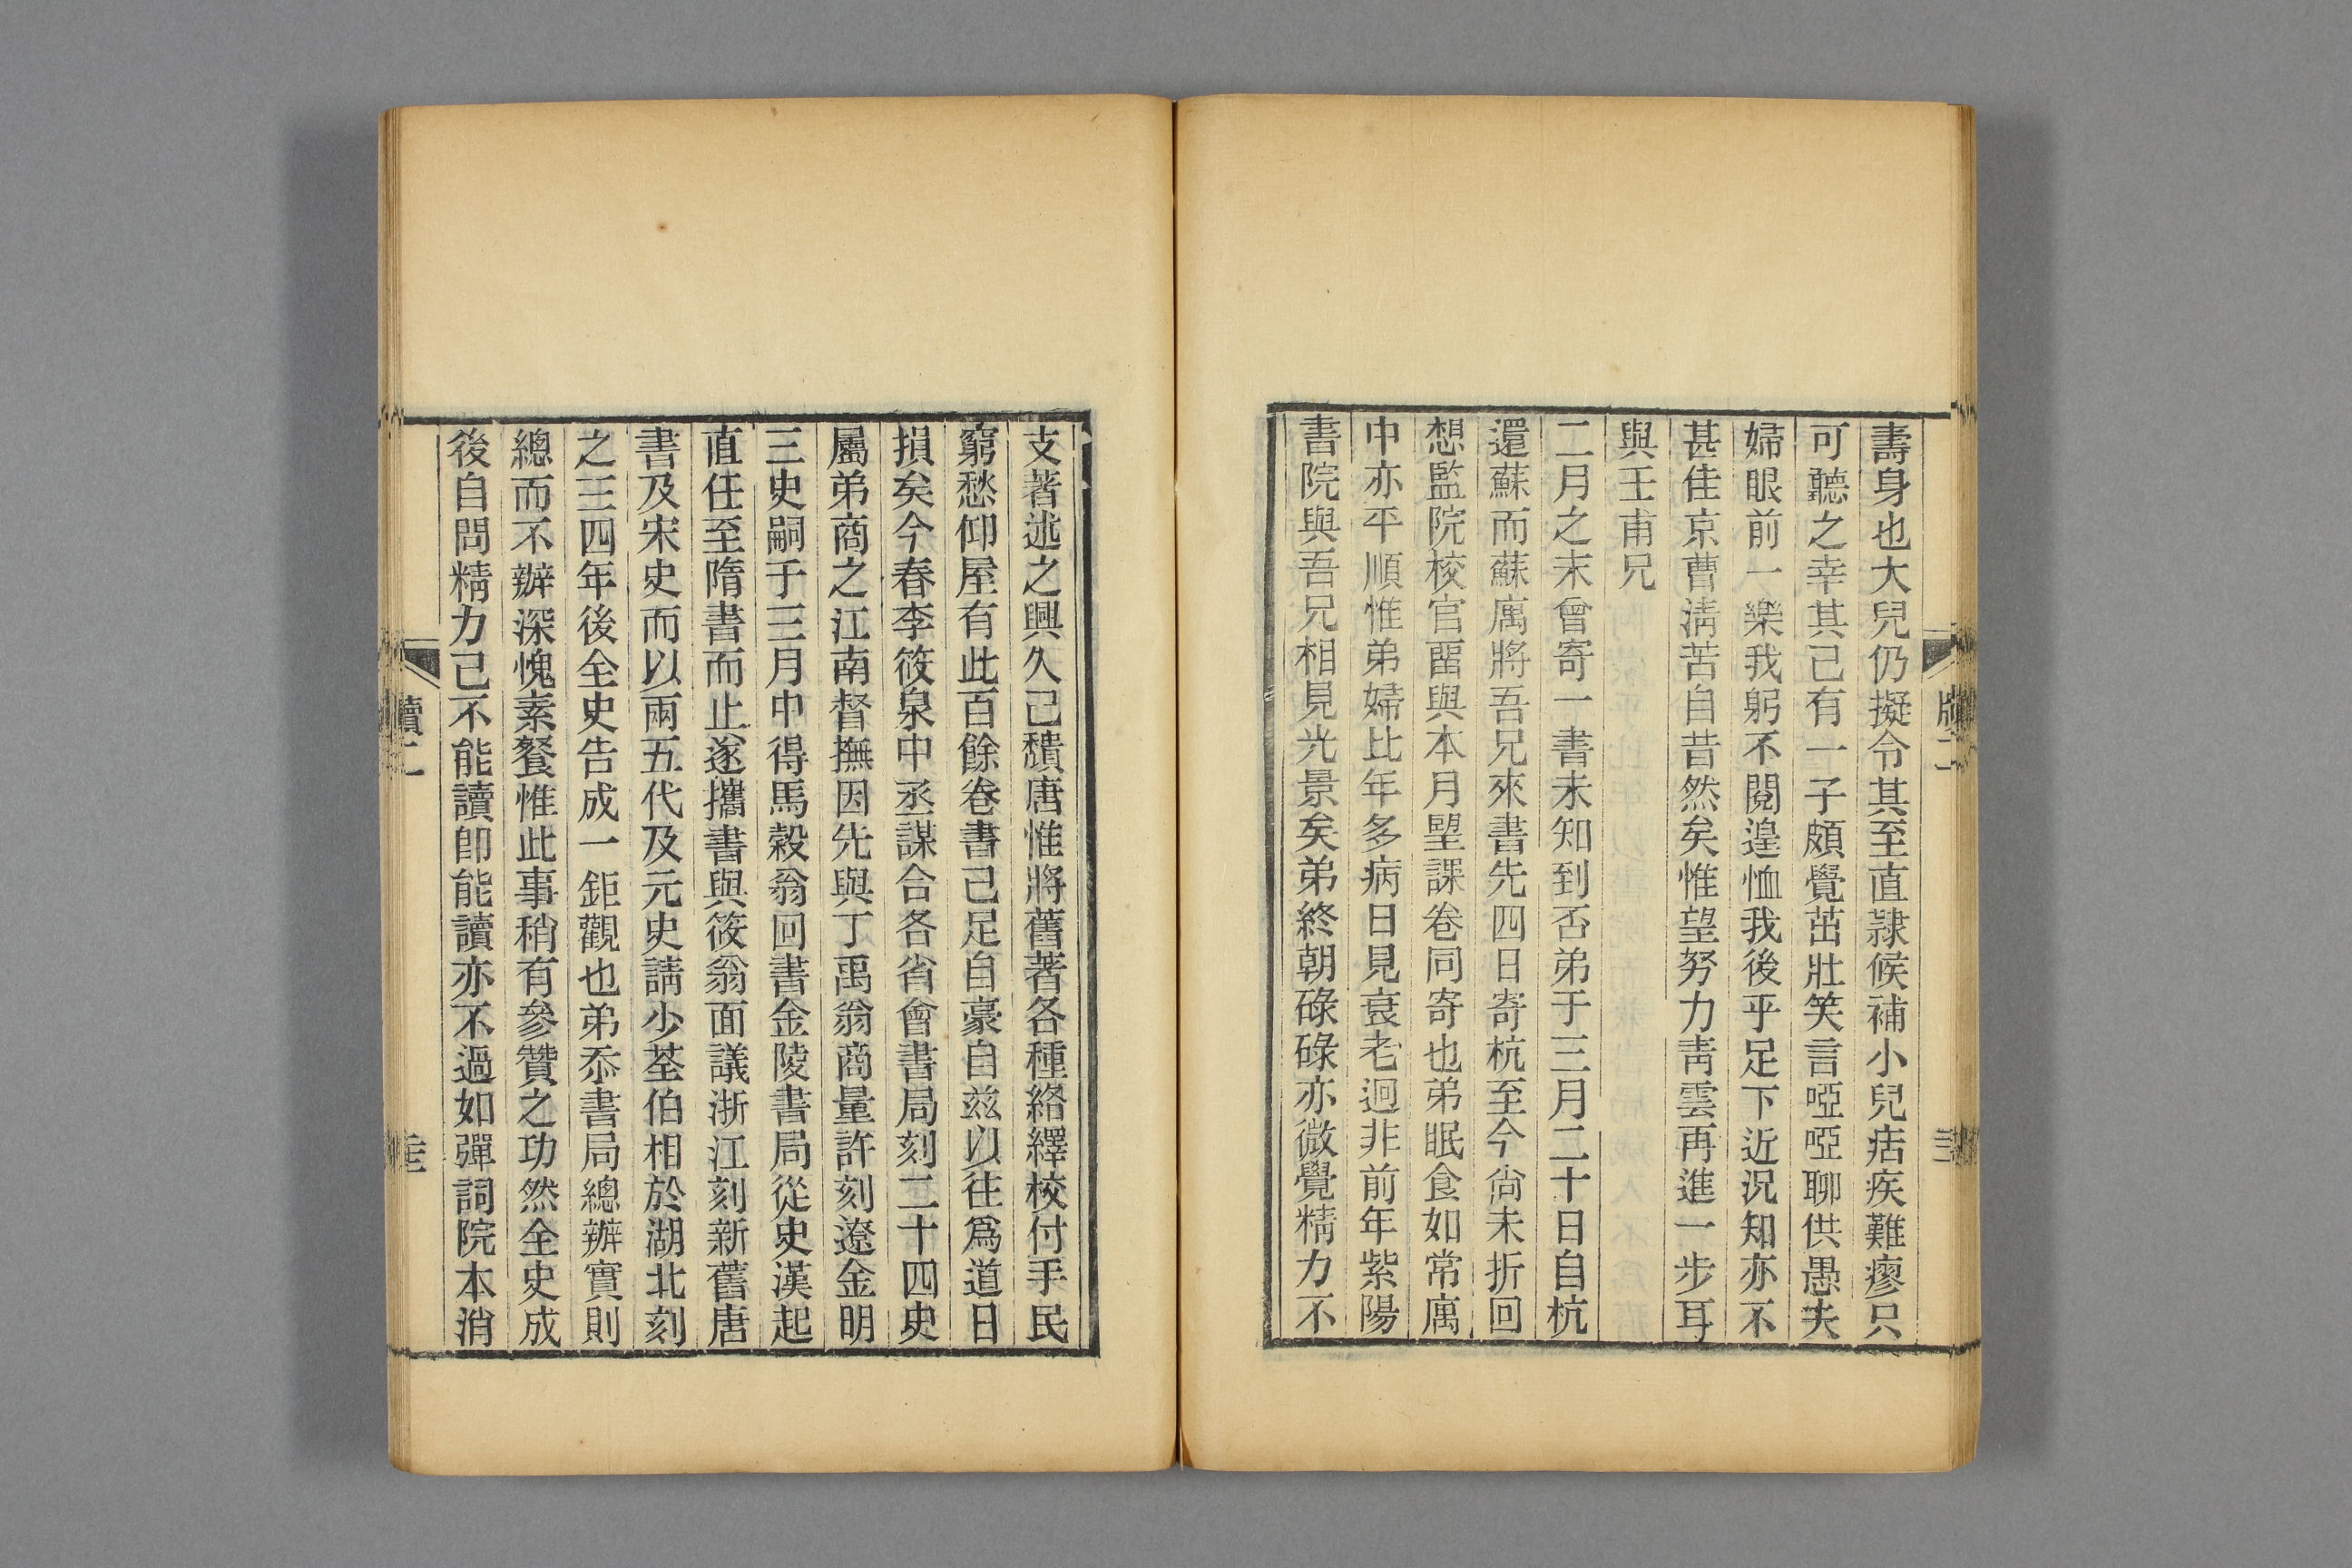 壽身也大兒仍擬令其至直隸候補小兒痁疾難瘳只
可聽之幸其已有一子頗覺茁壯笑言啞啞聊供愚夫
婦眼前一樂我躬不閱遑恤我後乎足下近況知亦不
甚佳京曹淸苦自昔然矣惟望努力靑雲再進一步耳
與壬甫兄
二月之末曾寄一書未知到否弟于三月二十日自杭
還蘇而蘇寓將吾兄來書先四日寄杭至今尙未折回
想監院校官畱與本月朢課卷同寄也弟眠食如常寓
中亦平順惟弟婦比年多病日見衰老迥非前年紫陽
書院與吾兄相見光景矣弟終朝碌碌亦微覺精力不
支著述之興久已穨唐惟將舊著各種絡繹校付手民
窮愁仰屋有此百餘卷書已足自豪自兹以往爲道日
損矣今春李筱泉中丞謀合各省會書局刻二十四史
屬弟商之江南督撫因先與丁禹翁商量許刻遼金明
三史嗣于三月中得馬穀翁回書金陵書局從史漢起
直任至隋書而止遂攜書與筱翁面議浙江刻新舊唐
書及宋史而以兩五代及元史請少荃伯相於湖北刻
之三四年後全史告成一鉅觀也弟忝書局總辦實則
總而不辦深愧素餐惟此事稍有參贊之功然全史成
後自問精力已不能讀卽能讀亦不過如彈詞院本消
牘二